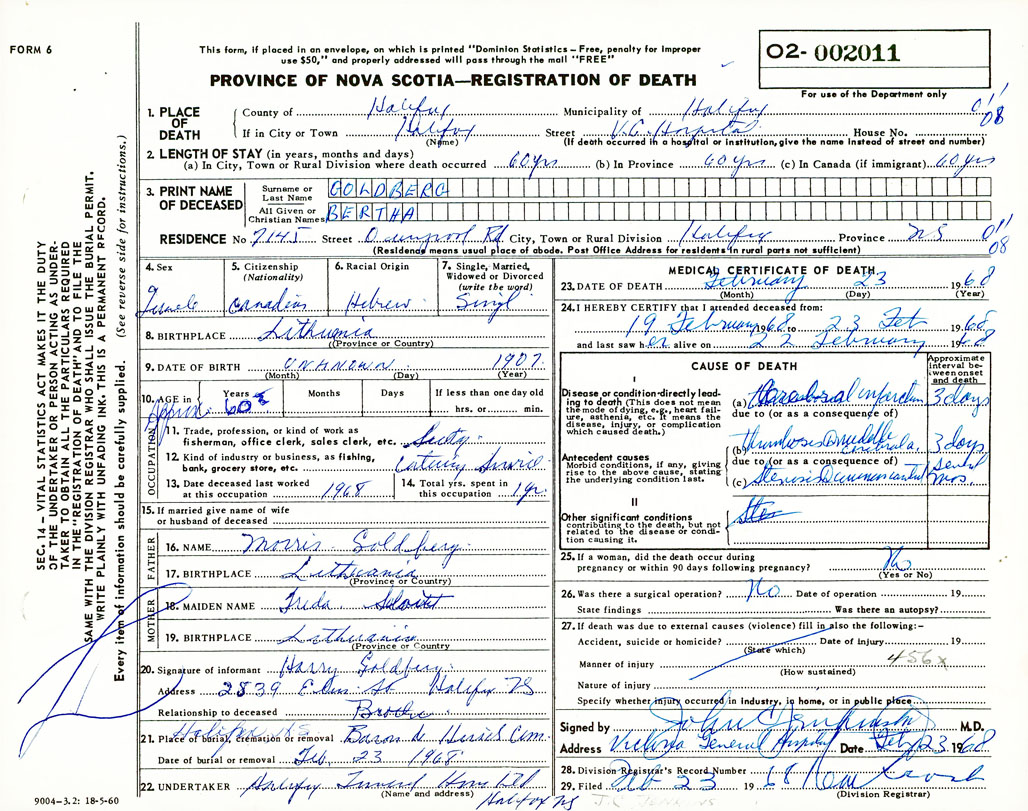 FORM 6
This form, if placed in an envelope, on which is printed "Dominion Statistics – Free, penalty for improper
use $50," and properly addressed will pass through the mail "FREE"
PROVINCE OF NOVA SCOTIA—REGISTRATION OF DEATH
02- 002011
For use of the Department only
1. PLACE OF DEATH
County of Halifax Municipality of Halifax
If in City or Town Halifax Street V.G. Hospital House No.
(Name) (If death occurred in a hospital or institution, give the name instead of street and number)
011
08
2. LENGTH OF STAY (in years, months and days)
(a) In City, Town or Rural Division where death occurred 60 yrs (b) In Province 60 yrs (c) In Canada (if immigrant) 60 yrs
3. PRINT NAME OF DECEASED
Surname or Last Name GOLDBERG
All Given or Christian Names BERTHA
RESIDENCE No 7145 Street Rd City, Town or Rural Division Halifax Province NS
(Residence means usual place of abode. Post Office Address for residents in rural parts not sufficient)
011
08
4. Sex Female
5. Citizenship (Nationality) Canadian
6. Racial Origin Hebrew
7. Single, Married, Widowed or Divorced (write the word) Singl
8. BIRTHPLACE Lithuania
(Province or Country)
9. DATE OF BIRTH UNKNOWN 1907
(Month) (Day) (Year)
10. AGE in Approx. Years 60 Months Days If less than one day old
hrs. or min.
OCCUPATION
11. Trade, profession, or kind of work as
fisherman, office clerk, sales clerk, etc.
12. Kind of industry or business, as fishing,
bank, grocery store, etc. Catering Service
13. Date deceased last worked
at this occupation 1968
14. Total yrs. spent in
this occupation 1 yr.
15. If married give name of wife
or husband of deceased
FATHER
16. NAME Morris Goldberg
17. BIRTHPLACE Lithuania
(Province or Country)
MOTHER
18. MAIDEN NAME Freda
19. BIRTHPLACE Lithuania
(Province or Country
20. Signature of informant Harry Goldberg
Address 2839 Elm St Halifax NS
Relationship to deceased Brother
21. Place of burial, cremation or removal Baron de Hirsch Cem.
Halifax NS
Date of burial or removal Feb. 23 1968
22. UNDERTAKER Halifax Funeral Home Ltd
(Name and address) Halifax NS
9004-3.2: 18-5-60
MEDICAL CERTIFICATE OF DEATH
23. DATE OF DEATH February 23 1968
(Month) (Day) (Year)
24. I HEREBY CERTIFY that I attended deceased from:
19 February 1968 to 23 Feb 1968
and last saw her alive on 22 February 1968
CAUSE OF DEATH
Approximate interval between onset and death
I
Disease or condition directly leading to death (This does not mean
the mode of dying, e.g., heart failure, asthenia, etc. It means the
disease, injury, or complication
which caused death.)
(a) cerebral infarction 3 days
due to (or as a consequence of)
Antecedent causes
Morbid conditions, if any, giving
rise to the above cause, stating
the underlying condition last.
(b) thrombosis middle cerebral a. 3 days
due to (or as a consequence of)
(c) stenosis common carotid mos.
II
Other significant conditions
contributing to the death, but not
related to the disease or condition causing it.
25. If a woman, did the death occur during
pregnancy or within 90 days following pregnancy? No
(Yes or No)
26. Was there a surgical operation? No Date of operation 19
State findings Was there an autopsy?
27. If death was due to external causes (violence) fill in also the following:–
Accident, suicide or homicide? Date of injury 19
(State which)
Manner of injury 456x
(How sustained)
Nature of injury
Specify whether injury occurred in industry, in home, or in public place
Signed by John M.D.
Address Victoria General Hospital Date Feb 23 1968
28. Division Registrar's Record Number
29. Filed Feb 23 1968
(Division Registrar)
SEC. 14 – VITAL STATISTICS ACT MAKES IT THE DUTY
OF THE UNDERTAKER OR PERSON ACTING AS UNDER-
TAKER TO OBTAIN ALL THE PARTICULARS REQUIRED
IN THE "REGISTRATION OF DEATH" AND TO FILE THE
SAME WITH THE DIVISION REGISTRAR WHO SHALL ISSUE THE BURIAL PERMIT.
WRITE PLAINLY WITH UNFADING INK. THIS IS A PERMANENT RECORD.
Every item of information should be carefully supplied. (See reverse side for instructions.)